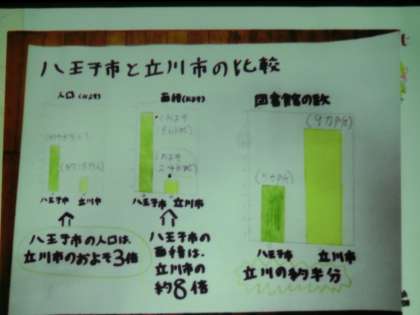 八王子市と立川市の比較
人口(およそ)
面積(およそ)
図書館の数
(およそ
(およそ
(9カ所)
八王子市 立川市
八王子市 立川市
八王子市 立川市
八王子市の人口は、
立川市のおよそ3倍
八王子市の
面積は、
立川市の
約8倍
立川の約半分